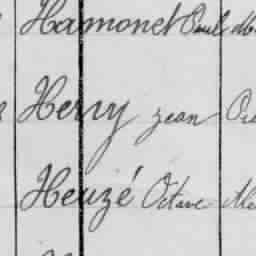 Hamonet Paul
Henry Jean
Heuzé Octave